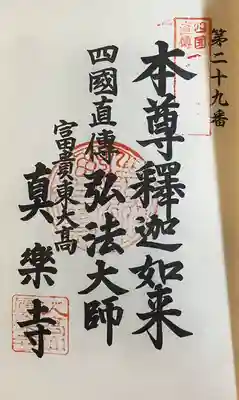 第二十九番
四国
本尊釋迦如来
四國直傳 弘法大師
富貴東大髙
真樂寺